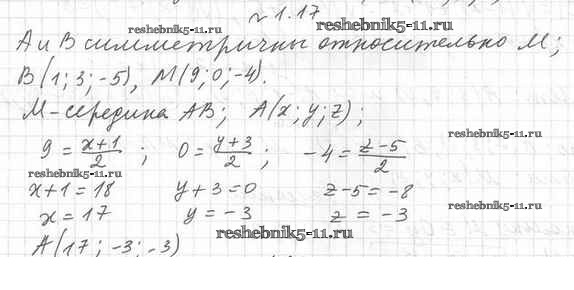 № 1.17
А и В симметричны относительно М;
В(1; 3; -5), М(9; 0; -4).
М - середина АВ; А(x; y; z);
9 = (x+1)/2 ; 0 = (y+3)/2 ; -4 = (z-5)/2
x+1=18 y+3=0 z-5=-8
x=17 y=-3 z=-3
А(17; -3; -3)
reshebnik5-11.ru
reshebnik5-11.ru
reshebnik5-11.ru
reshebnik5-11.ru
reshebnik5-11.ru
reshebnik5-11.ru